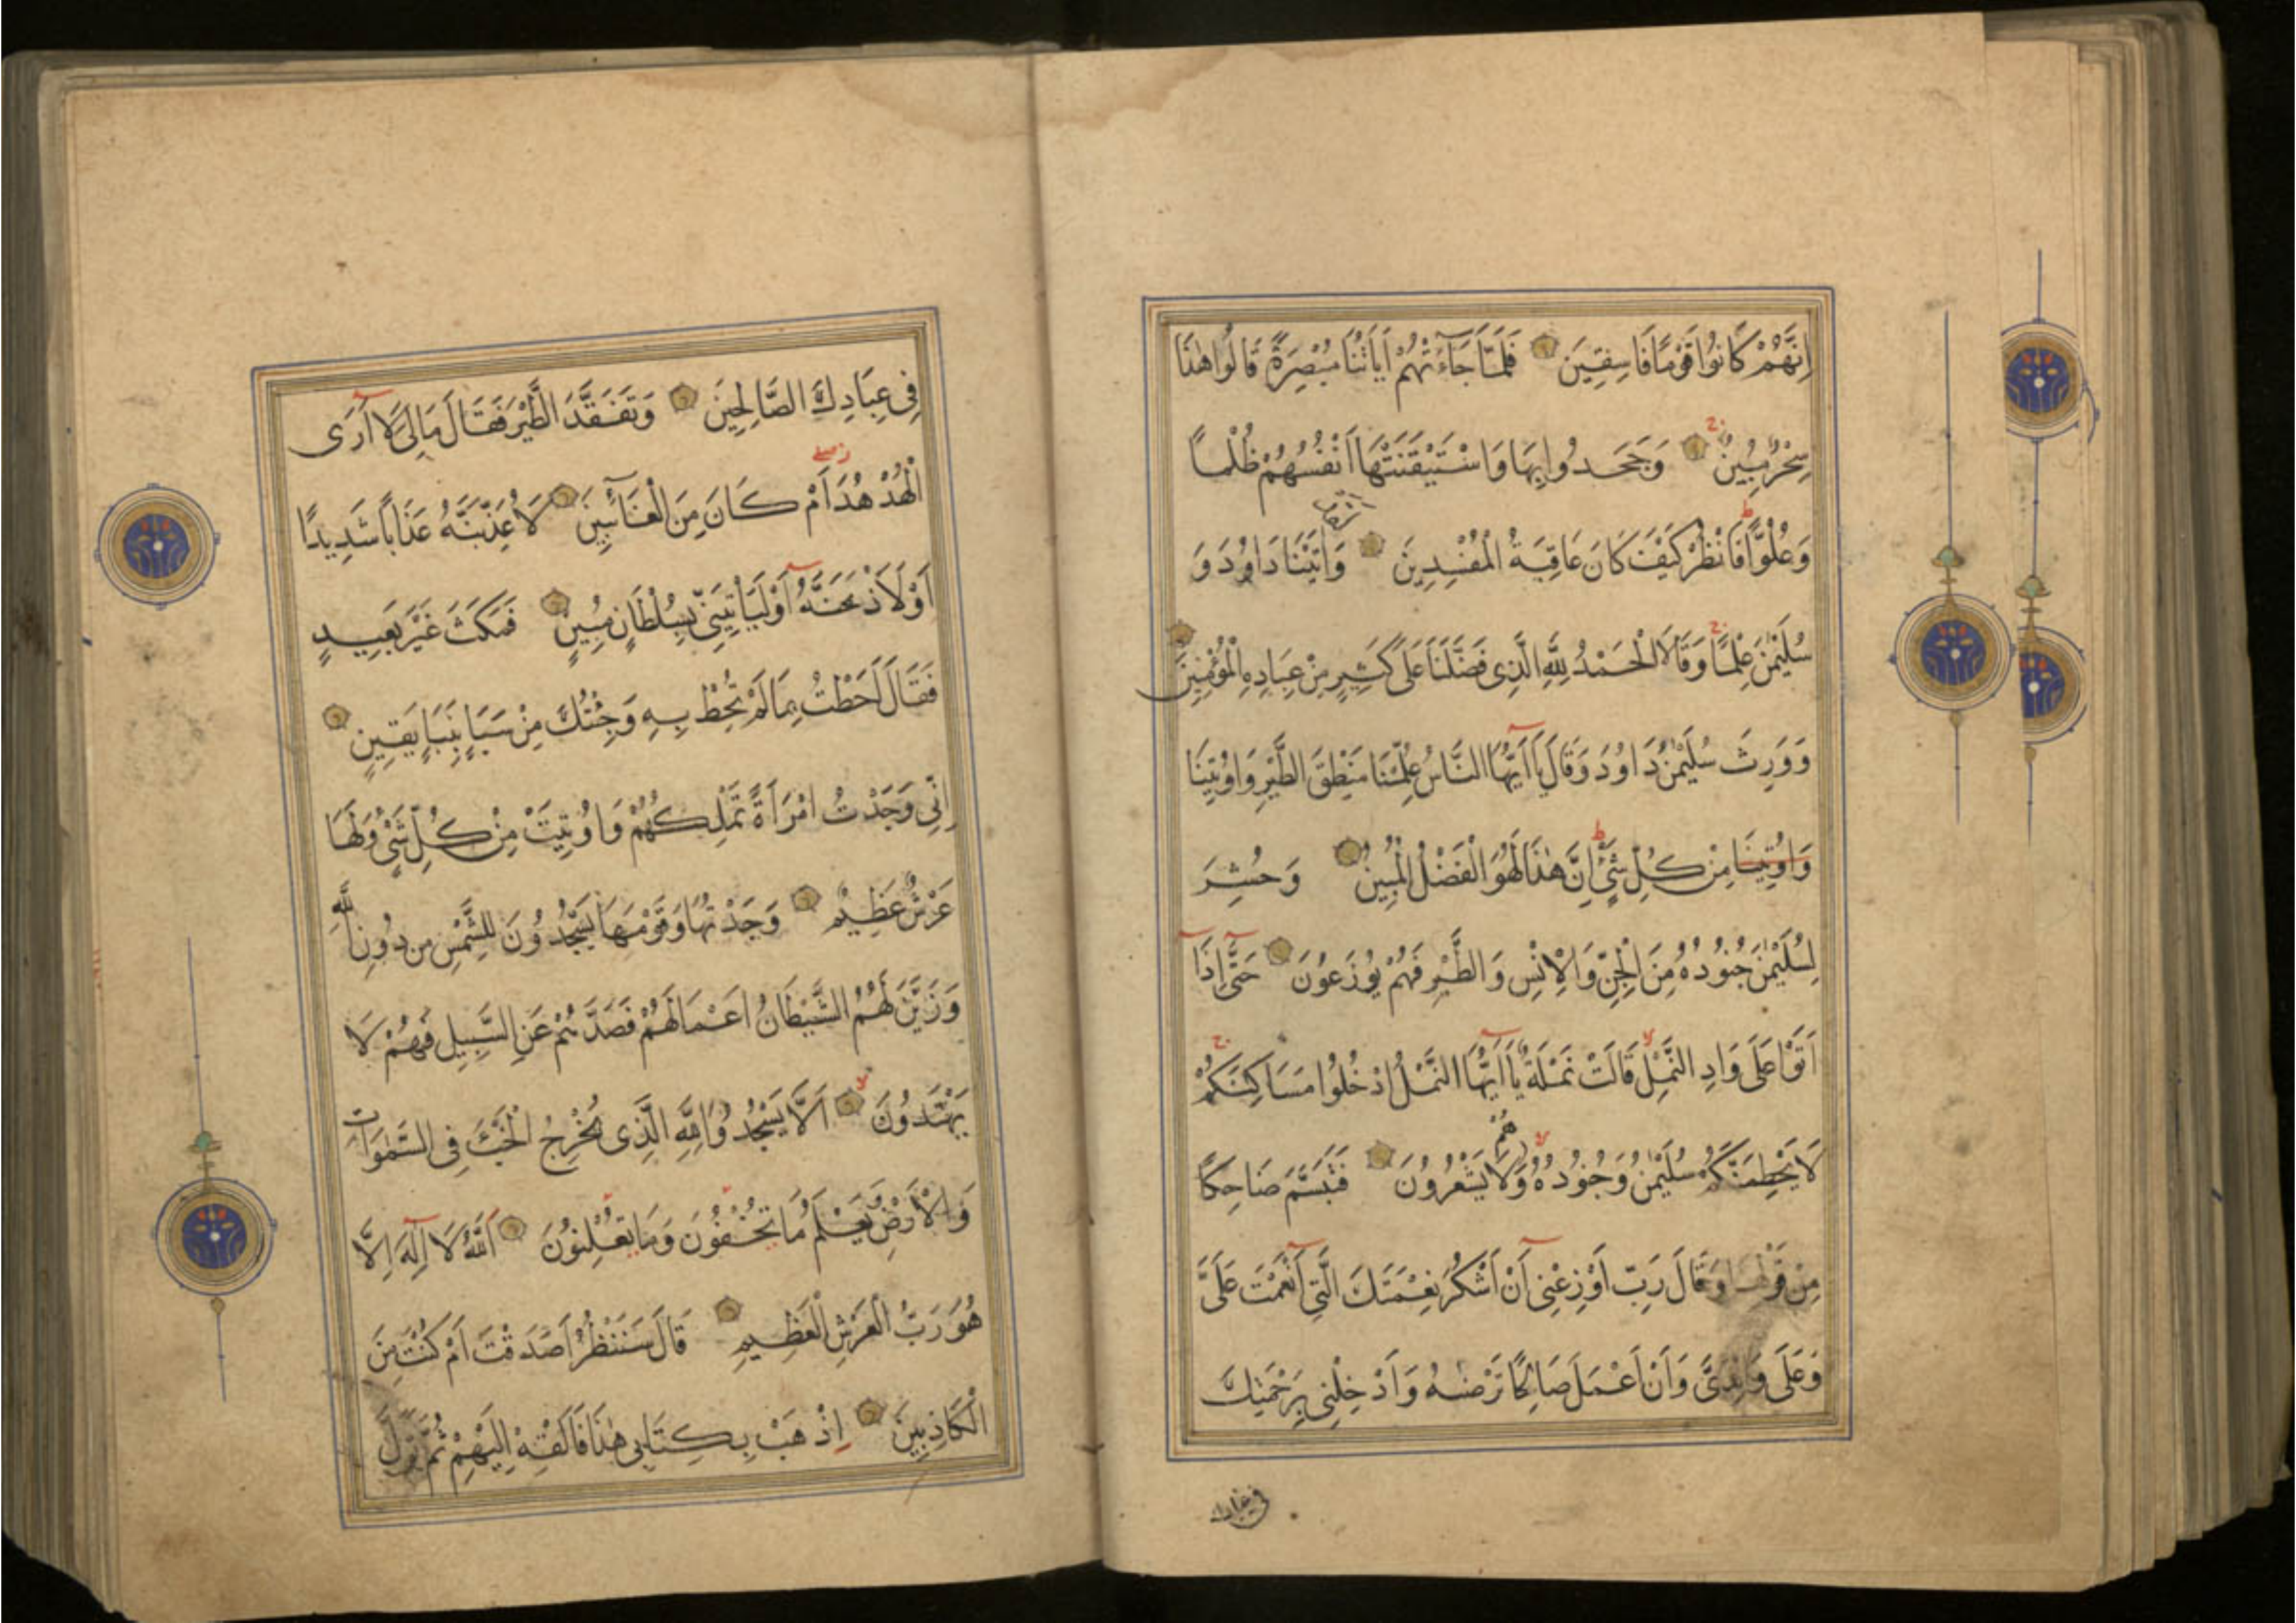 اِنَّهُمْ كَانُوا قَوْمًا فَاسِقِينَ فَلَمَّا جَآءَتْهُمْ اٰيَاتُنَا مُبْصِرَةً قَالُوا هٰذَا
سِحْرٌ مُبِينٌ وَجَحَدُوا بِهَا وَاسْتَيْقَنَتْهَا اَنْفُسُهُمْ ظُلْمًا
وَعُلُوًّا فَانْظُرْ كَيْفَ كَانَ عَاقِبَةُ الْمُفْسِدِينَ وَاٰتَيْنَا دَاوُدَ وَ
سُلَيْمٰنَ عِلْمًا وَقَالَا الْحَمْدُ لِلّٰهِ الَّذِى فَضَّلَنَا عَلَى كَثِيرٍ مِنْ عِبَادِهِ الْمُؤْمِنِينَ
وَوَرِثَ سُلَيْمٰنُ دَاوُدَ وَقَالَ يَآ اَيُّهَا النَّاسُ عُلِّمْنَا مَنْطِقَ الطَّيْرِ وَاُوتِينَا
وَاُوتِينَا مِنْ كُلِّ شَىْءٍ اِنَّ هٰذَا لَهُوَ الْفَضْلُ الْمُبِينُ وَحُشِرَ
لِسُلَيْمٰنَ جُنُودُهُ مِنَ الْجِنِّ وَالْاِنْسِ وَالطَّيْرِ فَهُمْ يُوزَعُونَ حَتَّى اِذَا
اَتَوْا عَلَى وَادِ النَّمْلِ قَالَتْ نَمْلَةٌ يَآ اَيُّهَا النَّمْلُ ادْخُلُوا مَسَاكِنَكُمْ
لَا يَحْطِمَنَّكُمْ سُلَيْمٰنُ وَجُنُودُهُ وَهُمْ لَا يَشْعُرُونَ فَتَبَسَّمَ ضَاحِكًا
مِنْ قَوْلِهَا وَقَالَ رَبِّ اَوْزِعْنِى اَنْ اَشْكُرَ نِعْمَتَكَ الَّتِى اَنْعَمْتَ عَلَىَّ
وَعَلَى وَالِدَىَّ وَاَنْ اَعْمَلَ صَالِحًا تَرْضٰيهُ وَاَدْخِلْنِى بِرَحْمَتِكَ
فى عبادك
فِى عِبَادِكَ الصَّالِحِينَ وَتَفَقَّدَ الطَّيْرَ فَقَالَ مَا لِىَ لَآ اَرَى
الْهُدْهُدَ اَمْ كَانَ مِنَ الْغَآئِبِينَ لَاُعَذِّبَنَّهُ عَذَابًا شَدِيدًا
اَوْ لَاَذْبَحَنَّهُ اَوْ لَيَأْتِيَنِّى بِسُلْطَانٍ مُبِينٍ فَمَكَثَ غَيْرَ بَعِيدٍ
فَقَالَ اَحَطْتُ بِمَا لَمْ تُحِطْ بِهِ وَجِئْتُكَ مِنْ سَبَاٍ بِنَبَاٍ يَقِينٍ
اِنِّى وَجَدْتُ امْرَاَةً تَمْلِكُهُمْ وَاُوتِيَتْ مِنْ كُلِّ شَىْءٍ وَلَهَا
عَرْشٌ عَظِيمٌ وَجَدْتُهَا وَقَوْمَهَا يَسْجُدُونَ لِلشَّمْسِ مِنْ دُونِ اللّٰهِ
وَزَيَّنَ لَهُمُ الشَّيْطَانُ اَعْمَالَهُمْ فَصَدَّهُمْ عَنِ السَّبِيلِ فَهُمْ لَا
يَهْتَدُونَ اَلَّا يَسْجُدُوا لِلّٰهِ الَّذِى يُخْرِجُ الْخَبْءَ فِى السَّمٰوَاتِ
وَالْاَرْضِ وَيَعْلَمُ مَا تُخْفُونَ وَمَا تُعْلِنُونَ اَللّٰهُ لَآ اِلٰهَ اِلَّا
هُوَ رَبُّ الْعَرْشِ الْعَظِيمِ قَالَ سَنَنْظُرُ اَصَدَقْتَ اَمْ كُنْتَ مِنَ
الْكَاذِبِينَ اِذْهَبْ بِكِتَابِى هٰذَا فَاَلْقِهْ اِلَيْهِمْ ثُمَّ تَوَلَّ